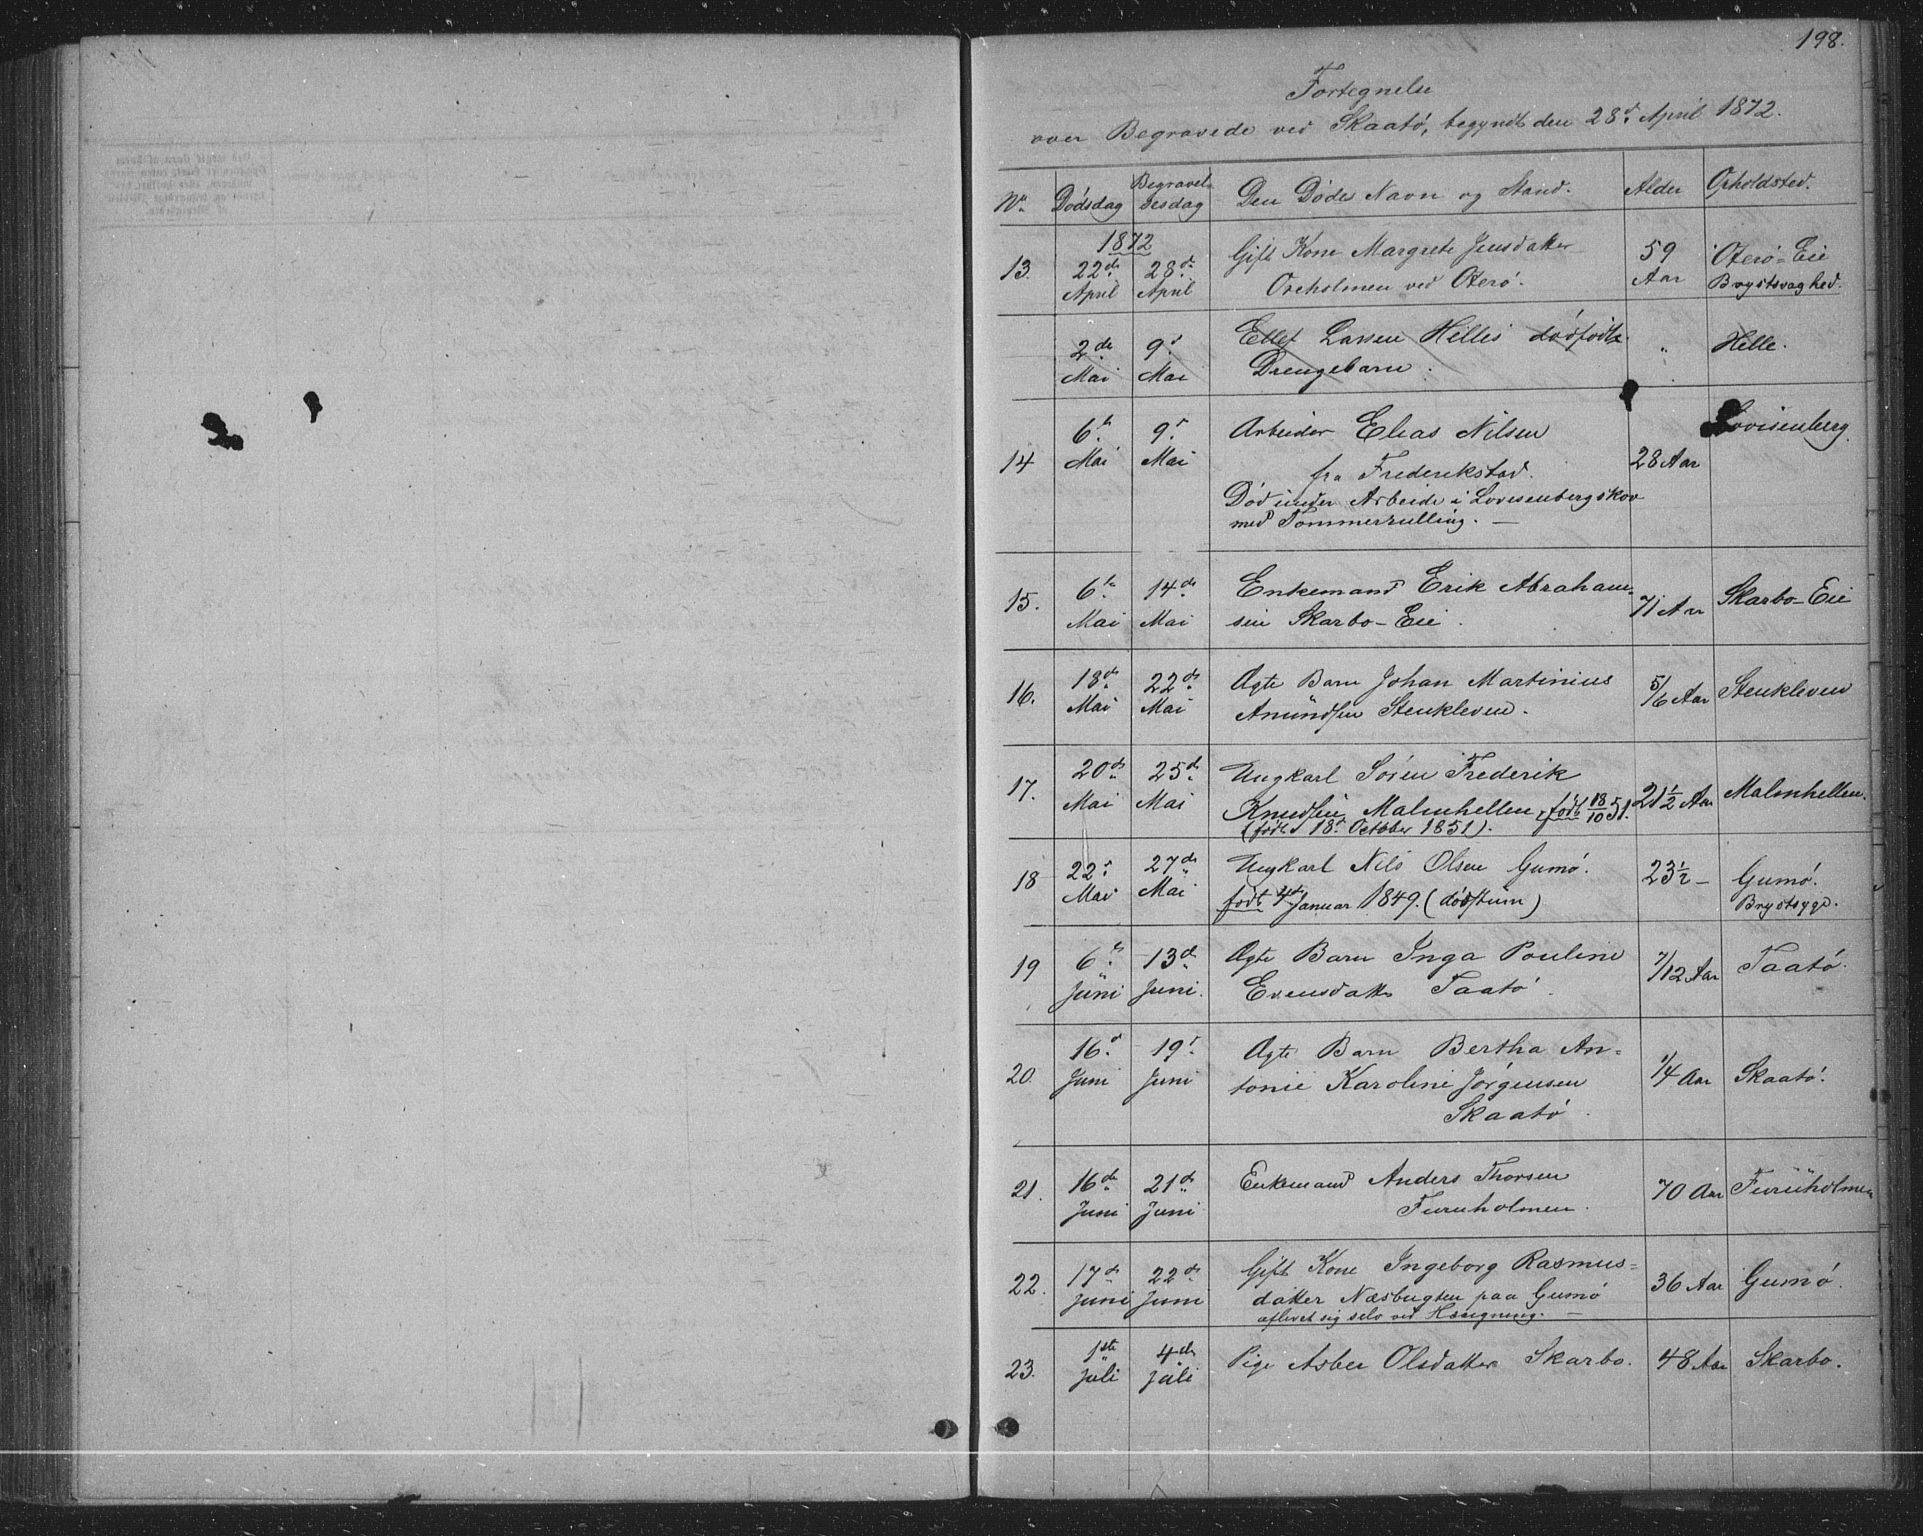 198.
Fortegnelse
over Begravede ved Skaatö, begyndt den 28d. April 1872.
No. Dödsdag Begravelsesdag Den Dödes Navn og Stand. Alder Opholdsted.
1872
13. 22de April 28de April Gift Kone Margrete Jensdatter 59 Aar Oterö-Eie
Oreholmen ved Oterö. Brystsvaghed.
2de Mai 9d Mai Ellef Larsen Helles dödfödte " Helle.
Drengebarn.
14 6te Mai 9d Mai Arbeider Elias Nilsen 28 Aar Lovisenberg.
fra Frederikstad.
Död under Arbeide i Lovisenbergskov
med Tömmerrulling. —
15. 6te Mai 14de Mai Enkemand Erik Abraham- 71 Aar Skarbo-Eie
sen Skarbo-Eie.
16. 18de Mai 22de Mai Ægte Barn Johan Martinius 5/6 Aar Stenkleven
Anundsen Stenkleven.
17. 20de Mai 25de Mai Ungkarl Sören Frederik 21 1/2 Aar Malmhellen.
Knudsen Malmhellen, födt 18/10 51.
(födt 18d. October 1851).
18 22d Mai 27de Mai Ungkarl Nils Olsen Gumö. 23 1/2 — Gumö.
födt 4de Januar 1849. Brystsyge.
19 6te Juni 13de Juni. Ægte Barn Inga Pouline 7/12 Aar Taatö.
Evensdatter Taatö.
20. 16d. Juni 19d Juni Ægte Barn Bertha An- 1/4 Aar Skaatö.
tonie Karoline Jörgensen
Skaatö.
21. 16de Juni 21de Juni Enkemand Anders Thorsen 70 Aar Furuholmen
Furuholmen.
22. 17de Juni 22de Juni Gift Kone Ingeborg Rasmus- 36 Aar Gumö.
datter Næsbugten paa Gumö
aflivet sig selv ved Hængning. —
23. 1ste Juli 4de Juli Pige Asber Olsdatter Skarbo. 48 Aar Skarbo.